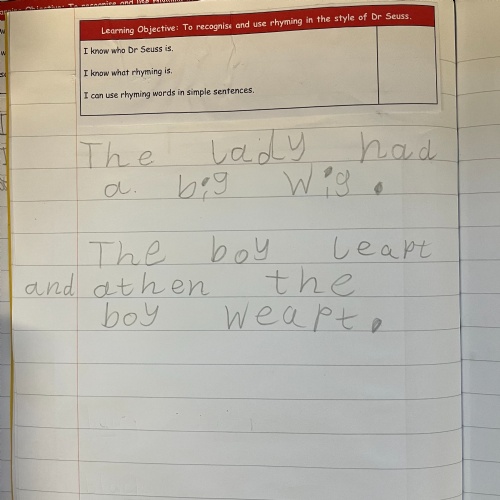 Learning Objective: To recognise and use rhyming in the style of Dr Seuss.
I know who Dr Seuss is.
I know what rhyming is.
I can use rhyming words in simple sentences.
The lady had
a. big Wig.
The boy leapt
and athen the
boy weapt.